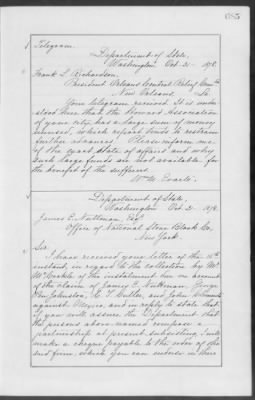 685
Telegram.
Department of State,
Washington, Oct. 21 - 1878.
Frank L. Richardson,
President Orleans Central Relief Com'tee
New Orleans, La.
Your telegram received. It is under-
stood here that the Howard Association
of your city has a large sum of money
unused, which report tends to restrain
further advances. Please inform me
of the exact state of affairs and why
such large funds are not available for
the benefit of the sufferers.
Wm. M. Evarts.
Department of State,
Washington Oct. 21 1878.
James E. Nuttman, Esq.
Office of National State Bank Co.
New York.
Sir,
I have received your letter of the
instant, in regard to the collection by Mr.
of the installment due on account
of the claim of James E. Nuttman, George
Johnston, E. T. Cutler, and John
against Mexico and in reply to state that
if you will assure the Department that
the persons above named compose a
partnership at present subsisting, I will
make a cheque payable to the order of the
said firm, which you can endorse in their